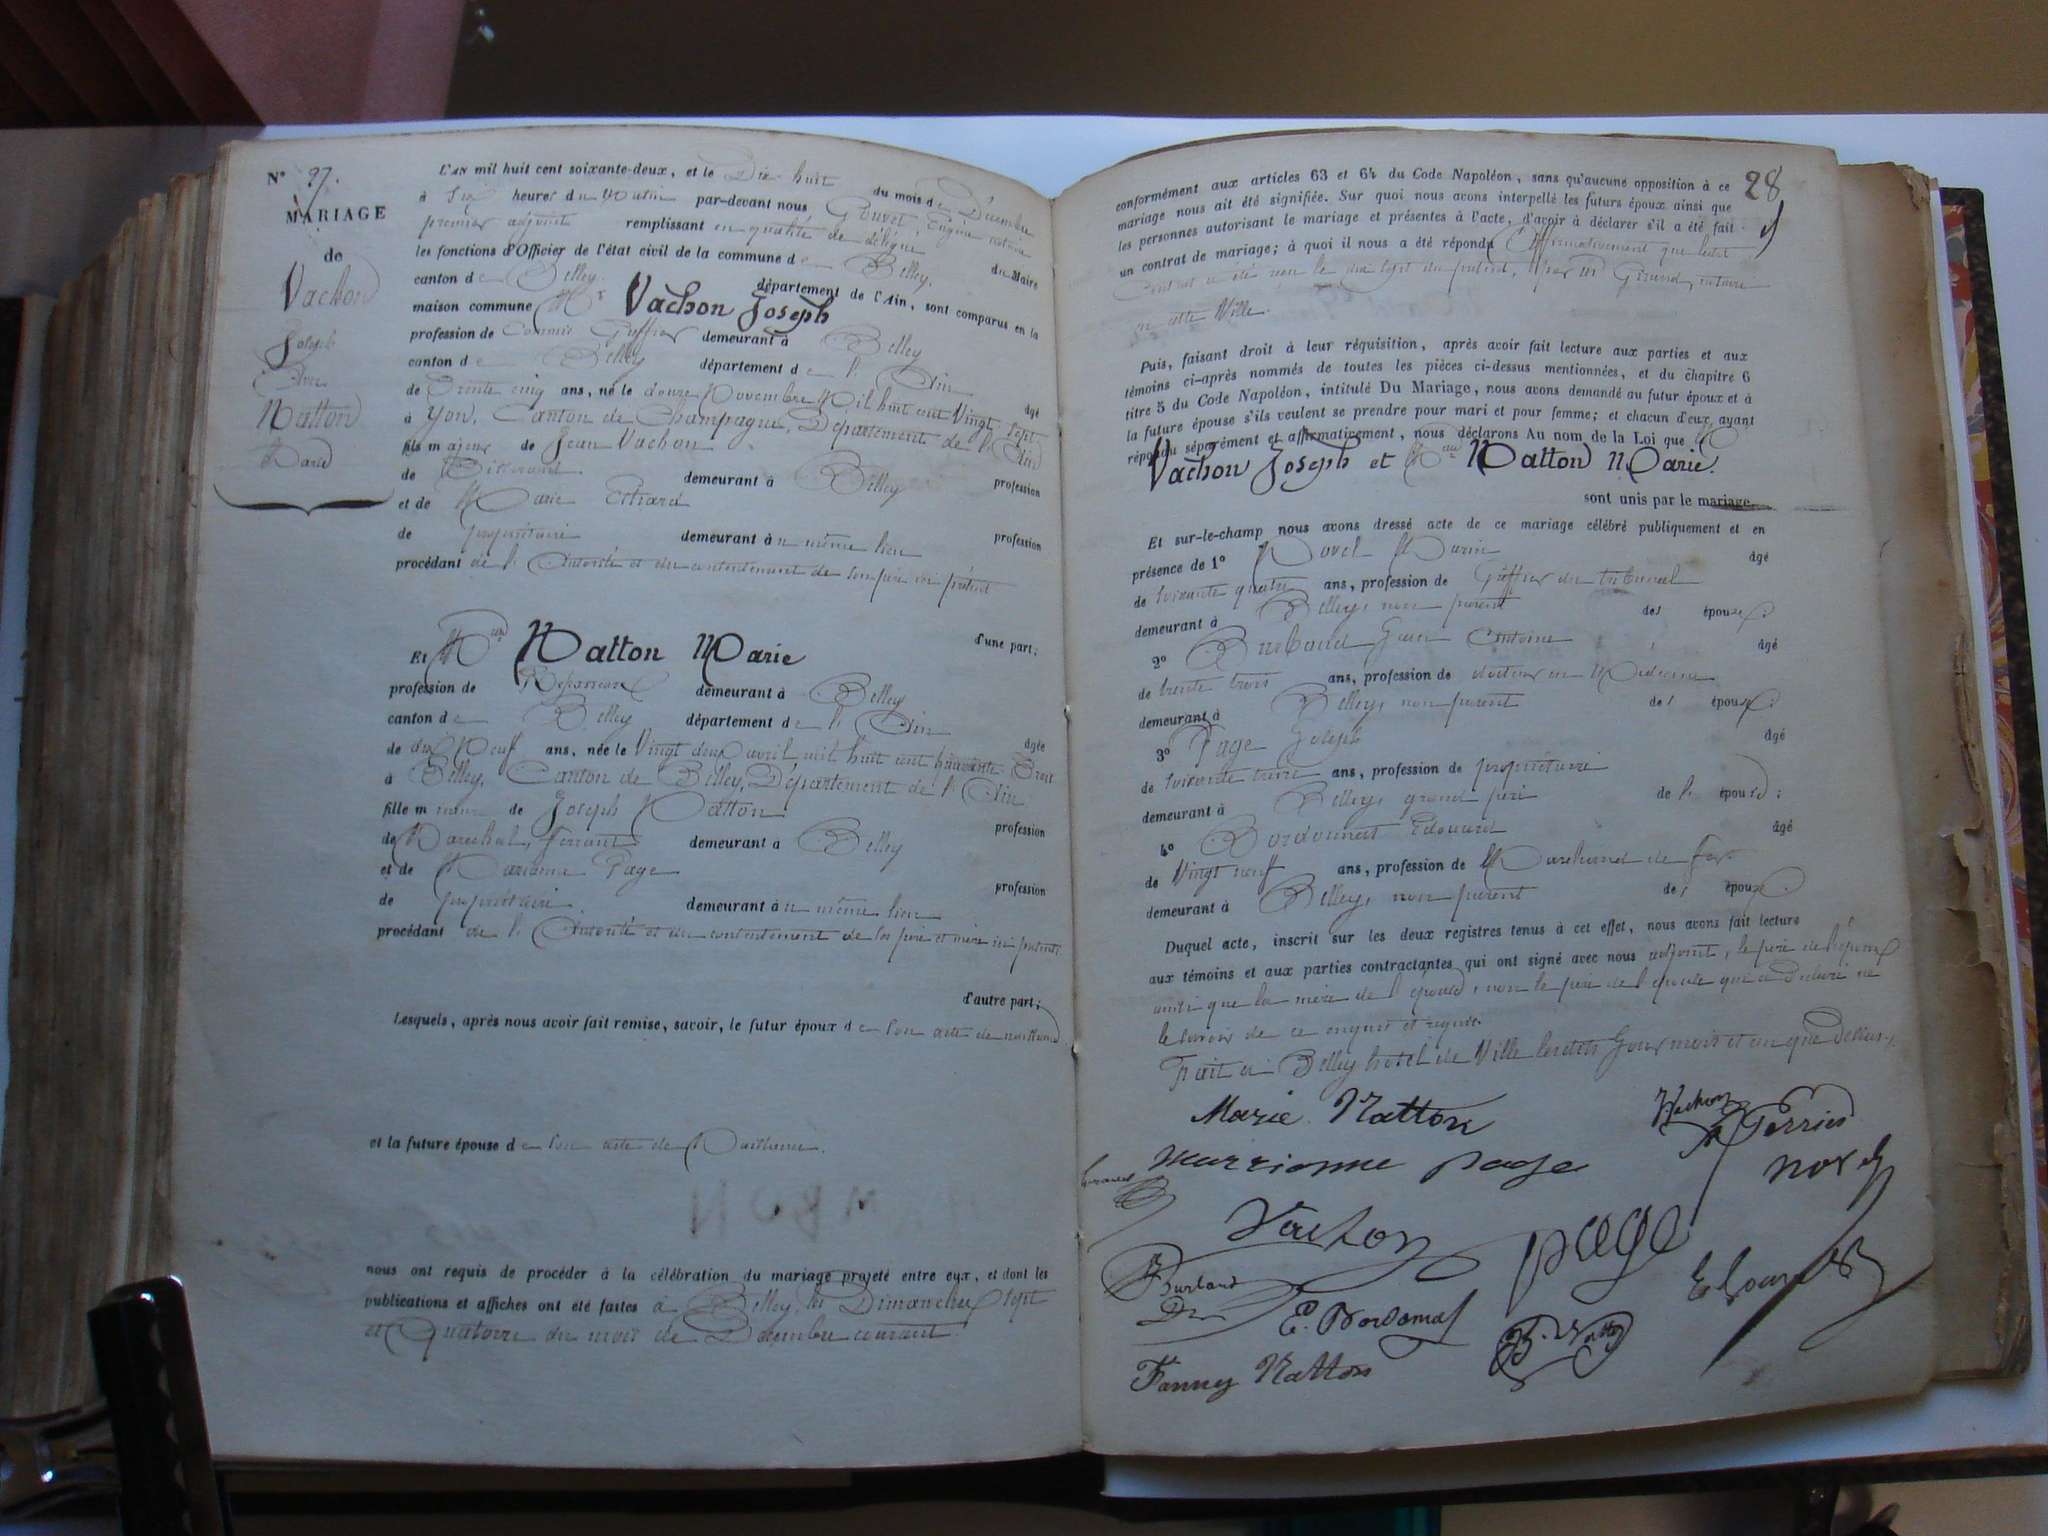 N° 27.
MARIAGE
de
Vachon
Joseph
Avec
Natton
Marie
L'AN mil huit cent soixante-deux, et le Dix huit du mois de Décembre
à Six heures du Matin par-devant nous Gouvet Eugène notaire
premier adjoint remplissant en qualité de délégué du Maire
les fonctions d'Officier de l'état civil de la commune de Belley.
canton de Belley. département de l'Ain, sont comparus en la
maison commune Mr Vachon Joseph
profession de Commis Greffier demeurant à Belley
canton de Belley département de l'Ain âgé
de Trente cinq ans, né le douze Novembre Mil huit cent Vingt Sept
à Yon, Canton de Champagne, Département de l'Ain
fils majeur de Jean Vachon profession
de demeurant à Belley
et de Marie profession
de propriétaire demeurant à u même lieu
procédant de l'Autorité et du consentement de son père ici présent
d'une part;
Et Mlle Natton Marie
profession de Repasseuse demeurant à Belley
canton de Belley département de l'Ain âgée
de dix Neuf ans, née le Vingt deux avril mil huit cent quarante Trois
à Belley, Canton de Belley, Département de l'Ain
fille mineure de Joseph Natton profession
de Maréchal, ferrant demeurant à Belley
et de Marianne Page profession
de propriétaire demeurant à u même lieu
procédant de l'Autorité et du consentement de ses père et mère ici présents
d'autre part;
Lesquels, après nous avoir fait remise, savoir, le futur époux de son acte de naissance
et la future épouse de son acte de Naissance.
nous ont requis de procéder à la célébration du mariage projeté entre eux, et dont les
publications et affiches ont été faites à Belley, les Dimanches Sept
et Quatorze du mois de Décembre courant.
28
conformément aux articles 63 et 64 du Code Napoléon, sans qu'aucune opposition à ce
mariage nous ait été signifiée. Sur quoi nous avons interpellé les futurs époux ainsi que
les personnes autorisant le mariage et présentes à l'acte, d'avoir à déclarer s'il a été fait
un contrat de mariage; à quoi il nous a été répondu Affirmativement que ledit
Contrat a été reçu le dix sept du présent, par Me Girerd, notaire
en cette Ville.
Puis, faisant droit à leur réquisition, après avoir fait lecture aux parties et aux
témoins ci-après nommés de toutes les pièces ci-dessus mentionnées, et du chapitre 6
titre 5 du Code Napoléon, intitulé Du Mariage, nous avons demandé au futur époux et à
la future épouse s'ils veulent se prendre pour mari et pour femme; et chacun d'eux, ayant
répondu séparément et affirmativement, nous déclarons Au nom de la Loi que
Vachon Joseph et Mlle Natton Marie.
sont unis par le mariage.
Et sur-le-champ nous avons dressé acte de ce mariage célébré publiquement et en
présence de 1° Novel Marin âgé
de soixante quatre ans, profession de Greffier du tribunal
demeurant à Belley, non parent des époux
2° Burbaud Jean Antoine âgé
de trente trois ans, profession de docteur en Médecine
demeurant à Belley, non parent des époux
3° Page Joseph âgé
de soixante treize ans, profession de propriétaire
demeurant à Belley, grand père de l'épouse;
4° Bordonnat Edouard âgé
de Vingt neuf ans, profession de Marchand de fer
demeurant à Belley, non parent des époux
Duquel acte, inscrit sur les deux registres tenus à cet effet, nous avons fait lecture
aux témoins et aux parties contractantes qui ont signé avec nous adjoint, le père de l'époux
ainsi que la mère de l'épouse, non le père de l'épouse qui a déclaré ne
le savoir de ce enquis et requis.
Fait à Belley hotel de Ville lesdits Jour mois et an que Dessus.
Marie Natton Vachon
Perrier
marrionne page Novel
Vachon page
Burbaud
Dr E. Bordonnat
Fanny Natton